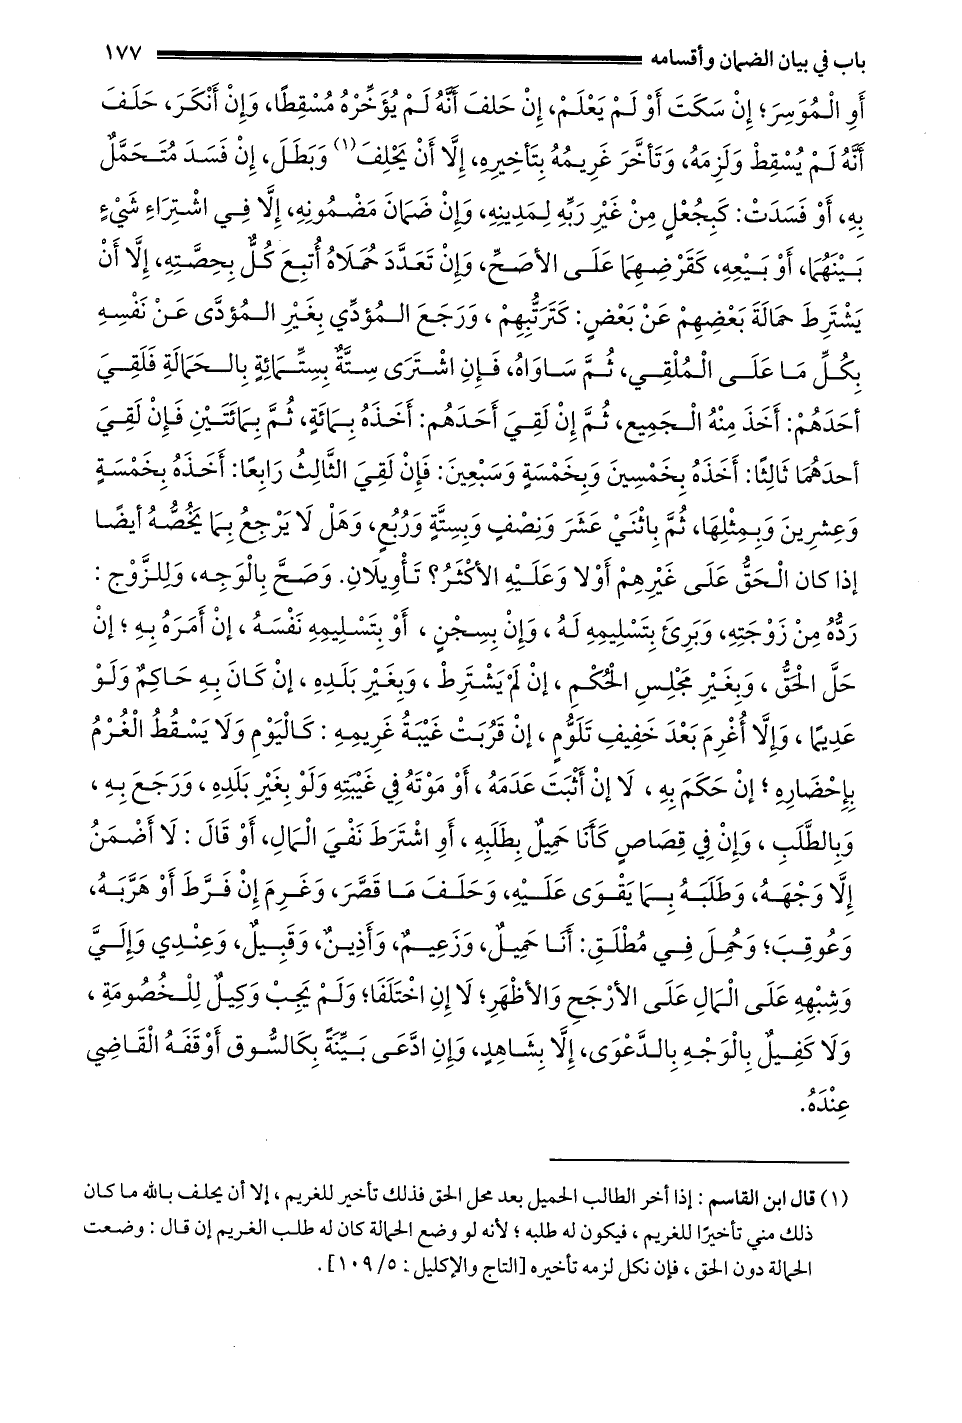 باب في بيان الضمان وأقسامه ١٧٧
أَوِ الْمُوَسِرَ؛ إِنْ سَكَتَ أَوْ لَمْ يَعْلَمْ، إِنْ حَلفَ أَنَّهُ لَمْ يُؤَخِّرْهُ مُسْقِطًا، وَإِنْ أَنْكَرَ، حَلَفَ
أَنَّهُ لَمْ يُسْقِطْ وَلَزِمَهُ، وَتَأَخَّرَ غَرِيمُهُ بِتَأخِيرِهِ، إِلَّا أَنْ يَحْلِفَ(١) وَبَطَلَ، إِنْ فَسَدَ مُتَحَمَّلٌ
بِهِ، أَوْ فَسَدَتْ: كَبِجُعْلٍ مِنْ غَيْرِ رَبِّهِ لِمَدِينِهِ، وَإِنْ ضَمَانَ مَضْمُونِهِ، إِلَّا فِي اشْتِرَاءِ شَيْءٍ
بَيْنَهُمَا، أَوْ بَيْعِهِ، كَقَرْضِهِمَا عَلَى الأَصَحِّ، وَإِنْ تَعَدَّدَ حُمَلَاهُ أُتبِعَ كُلٌّ بِحِصَّتِهِ، إِلَّا أَنْ
يَشْتَرِطَ حَمَالَةَ بَعْضِهِمْ عَنْ بَعْضٍ: كَتَرَتُّبِهِمْ ، وَرَجَعَ الْمُؤدِّي بِغَيْرِ الْمُؤدَّى عَنْ نَفْسِهِ
بِكُلِّ مَا عَلَى الْمُلْقِي، ثُمَّ سَاوَاهُ، فَإِنِ اشْتَرَى سِتَّةٌ بِسِتِّمَائِةٍ بِالْحَمَالَةِ فَلَقِيَ
أحَدَهُمْ: أَخَذَ مِنْهُ الْجَمِيع، ثُمَّ إِنْ لَقِيَ أَحَدَهُم: أَخَذَهُ بِمَائَةٍ، ثُمَّ بِمَائَتَيْنِ فَإِنْ لَقِيَ
أحدهُمَا ثَالِثًا: أَخَذَهُ بِخَمْسِينَ وَبِخَمْسَةٍ وَسَبْعِينَ: فَإِنْ لَقِيَ الثَّالِثُ رَابِعًا: أَخَذَهُ بِخَمْسَةٍ
وَعِشرِينَ وَبِمِثْلِهَا، ثُمَّ بِاثْنَيْ عَشَرَ وَنِصْفٍ وَبِسِتَّةٍ وَرُبُعٍ، وَهَلْ لَا يَرْجِعُ بِمَا يَخُصُّهُ أيضًا
إذا كان الْحَقُّ عَلَى غَيْرِهِمْ أوْلا وَعَلَيْهِ الأكْثَرُ؟ تَأوِيلَانِ. وَصَحَّ بِالْوَجِه، وَلِلزَّوْجِ :
رَدُّهُ مِنْ زَوْجَتِهِ، وَبَرِئَ بِتَسْلِيمِهِ لَهُ ، وَإِنْ بِسِجْنٍ ، أَوْ بِتَسْلِيمِهِ نَفْسَهُ ، إِنْ أَمَرَهُ بِهِ ؛ إنْ
حَلَّ الْحَقُّ ، وَبِغَيْرِ مَجْلِسِ الْحُكْمِ ، إِنْ لَمْ يَشْتَرِطْ ، وَبِغَيْرِ بَلَدِهِ ، إِنْ كَانَ بِهِ حَاكِمٌ وَلَوْ
عَدِيمًا ، وَإِلَّا أُغْرِمَ بَعْدَ خَفِيفِ تَلَوُّمٍ ، إِنْ قَرُبَتْ غَيْبَةُ غَرِيمِهِ : كَالْيَوْمِ وَلَا يَسْقُطُ الْغُرْمُ
بِإِحْضَارِهِ ؛ إِنْ حَكَمَ بِهِ ، لَا إِنْ أَثْبَتَ عَدَمَهُ ، أَوْ مَوْتَهُ فِي غَيْبَتِهِ وَلَوْ بِغَيْرِ بَلَدِهِ ، وَرَجَعَ بِهِ ،
وَبِالطَّلَبِ ، وَإِنْ فِي قِصَاصٍ كَأَنَا حَمِيلٌ بِطَلَبِهِ ، أَوِ اشْتَرَطَ نَفْيَ الْمَالِ، أَوْ قَالَ : لَا أَضْمَنُ
إِلَّا وَجْهَهُ، وَطَلَبَهُ بِمَا يَقْوَى عَلَيْهِ، وَحَلَفَ مَا قَصَّرَ، وَغَرِمَ إِنْ فَرَّطَ أَوْ هَرَّبَهُ،
وَعُوقِبَ؛ وَحُمِلَ فِي مُطْلَقِ: أَنَا حَمِيلٌ، وَزَعِيمٌ، وَأَذِينٌ، وَقَبِيلٌ، وَعِنْدِي وَإِلَيَّ
وَشِبْهِهِ عَلَى الْمَالِ عَلَى الأَرْجَحِ وَالأَظْهَرِ؛ لَا إِنِ اخْتَلَفَا؛ وَلَمْ يَجِبْ وَكِيلٌ لِلْخُصُومَةِ ،
وَلَا كَفِيلٌ بِالْوَجْهِ بِالدَّعْوَى، إِلَّا بِشَاهِدٍ، وَإِنِ ادَّعَى بَيِّنَةً بِكَالسُّوقِ أَوْقَفَهُ الْقَاضِي
عِنْدَهُ.
(١) قال ابن القاسم : إذا أخر الطالب الحميل بعد محل الحق فذلك تأخير للغريم ، إلا أن يحلف بالله ما كان
ذلك مني تأخيرًا للغريم ، فيكون له طلبه ؛ لأنه لو وضع الحمالة كان له طلب الغريم إن قال : وضعت
الحمالة دون الحق ، فإن نكل لزمه تأخيره [التاج والإكليل : ٥/ ١٠٩] .